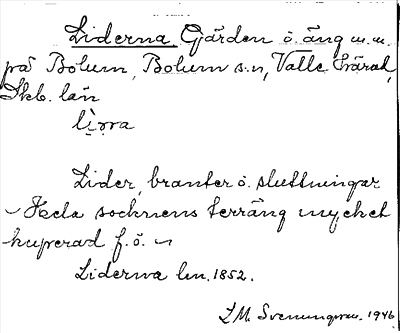 Liderna, Gärden o. äng m.m.
på Bolum, Bolum s:n, Valle härad,
Skb. län
li̠ṇa
Lider, branter o. sluttningar
~ Hela socknens terräng mycket
kuperad f. ö. ~
Liderna lm. 1852.
I.M. Svenungsson. 1946